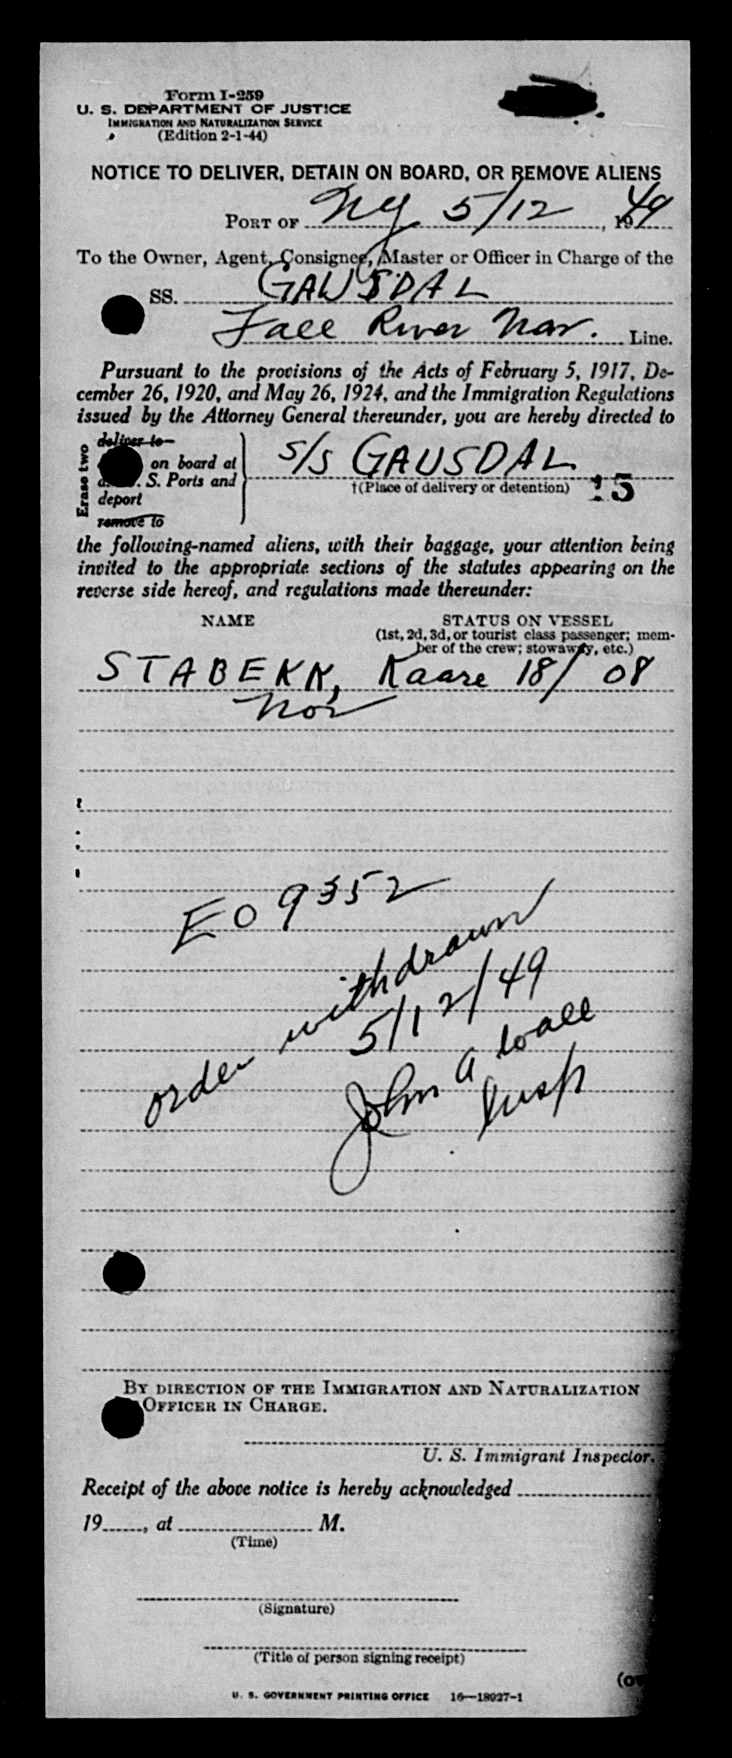 Form I-259
U. S. DEPARTMENT OF JUSTICE
IMMIGRATION AND NATURALIZATION SERVICE
(Edition 2-1-44)
NOTICE TO DELIVER, DETAIN ON BOARD, OR REMOVE ALIENS
PORT OF NY 5/12, 1949
To the Owner, Agent, Consignee, Master or Officer in Charge of the
SS. GAUSDAL
Fall River Nav. Line.
Pursuant to the provisions of the Acts of February 5, 1917, De-
cember 26, 1920, and May 26, 1924, and the Immigration Regulations
issued by the Attorney General thereunder, you are hereby directed to
Erase two
deliver to
on board at S/S GAUSDAL
. S. Ports and †(Place of delivery or detention) 15
deport
remove to
the following-named aliens, with their baggage, your attention being
invited to the appropriate sections of the statutes appearing on the
reverse side hereof, and regulations made thereunder:
NAME STATUS ON VESSEL
(1st, 2d, 3d, or tourist class passenger; mem-
ber of the crew; stowaway, etc.)
STABEKK, Kaare 18/ 08
Nor
EO 9352
order withdrawn
5/12/49
John A Wall
Insp
BY DIRECTION OF THE IMMIGRATION AND NATURALIZATION
OFFICER IN CHARGE.
U. S. Immigrant Inspector.
Receipt of the above notice is hereby acknowledged
19, at M.
(Time)
(Signature)
(Title of person signing receipt)
U. S. GOVERNMENT PRINTING OFFICE 16—18027-1